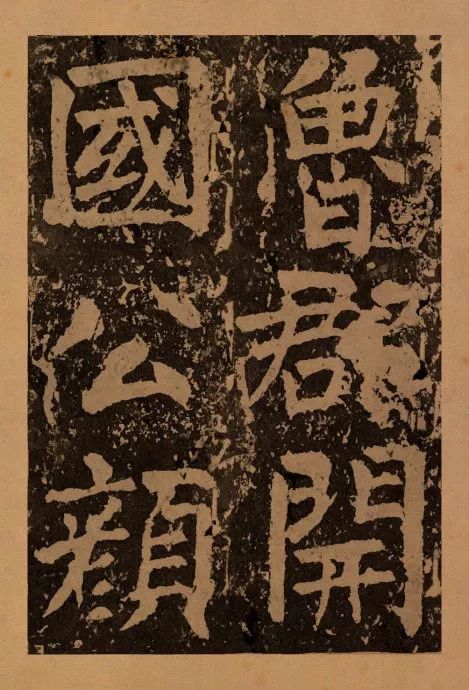 魯郡開
國公顏